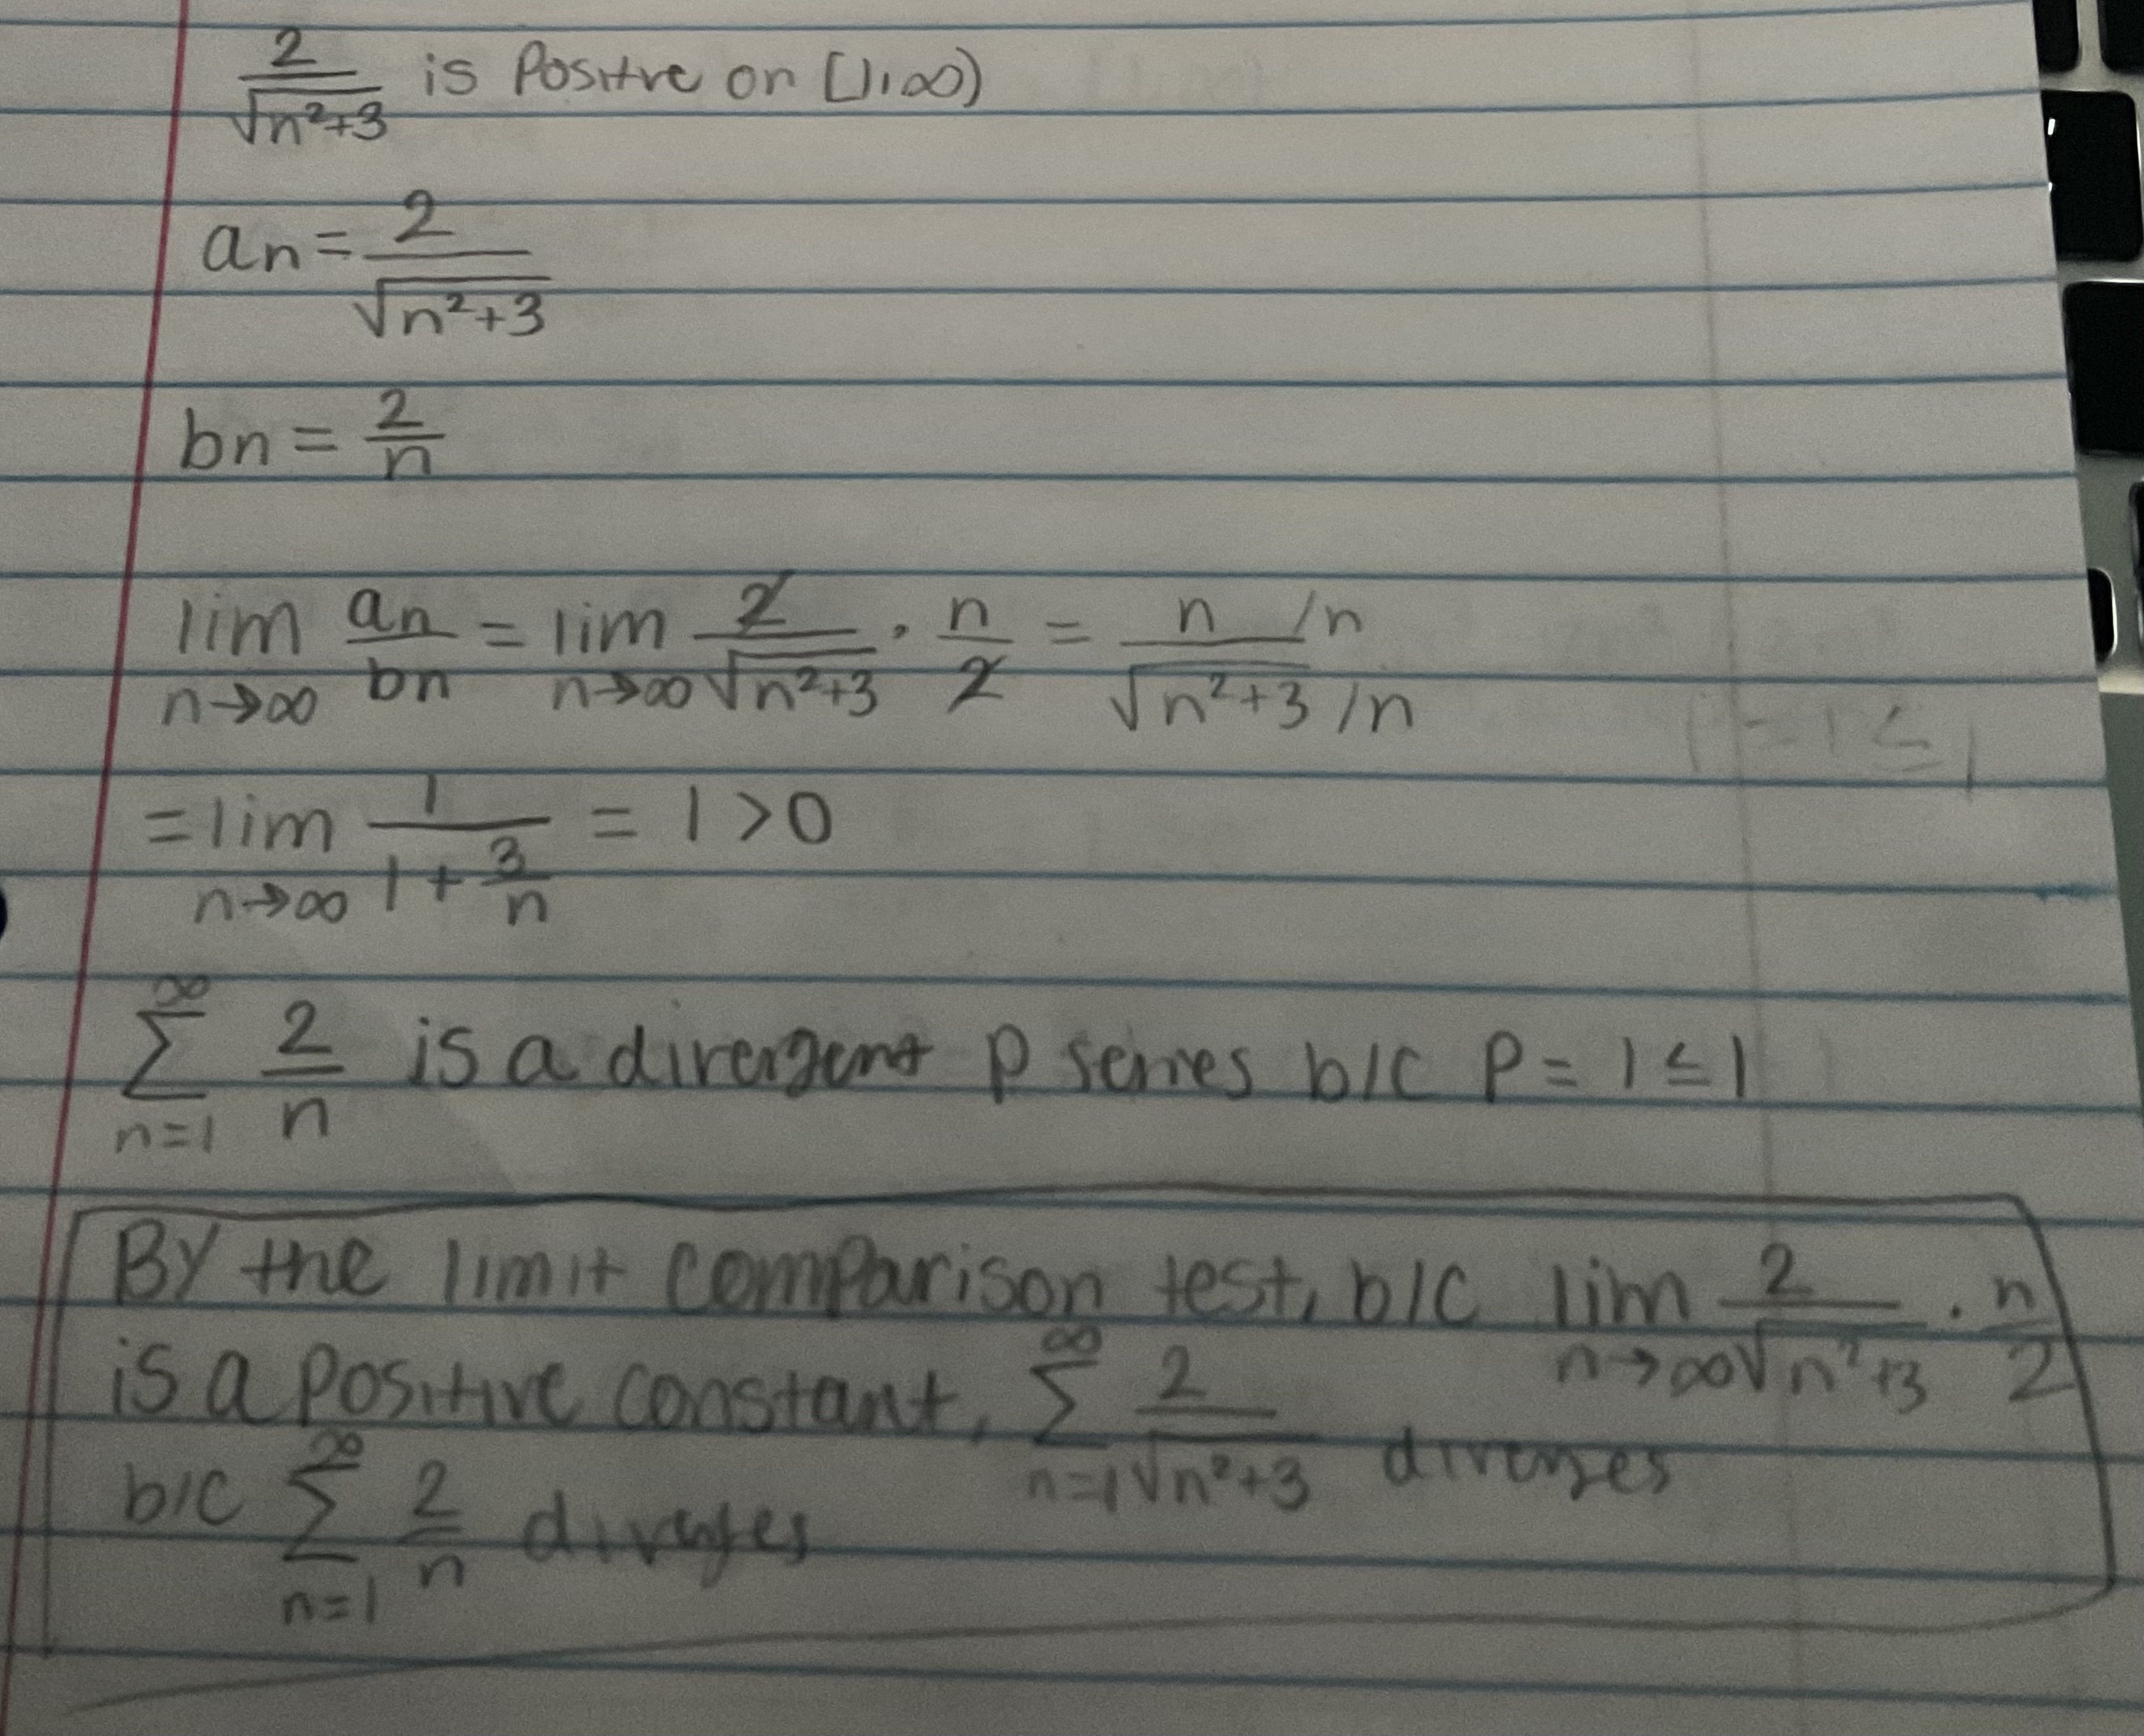 2/√(n²+3) is Positive on [1,∞)
an = 2/√(n²+3)
bn = 2/n
lim n→∞ an/bn = lim n→∞ 2/√(n²+3) · n/2 = n /n / √(n²+3) /n
= lim n→∞ 1/(1 + 3/n) = 1 > 0
∞ Σ n=1 2/n is a divergent p series b/c P = 1 ≤ 1
By the limit comparison test, b/c lim n→∞ 2/√(n²+3) · n/2
is a positive constant, ∞ Σ n=1 2/√(n²+3) diverges
b/c ∞ Σ n=1 2/n diverges